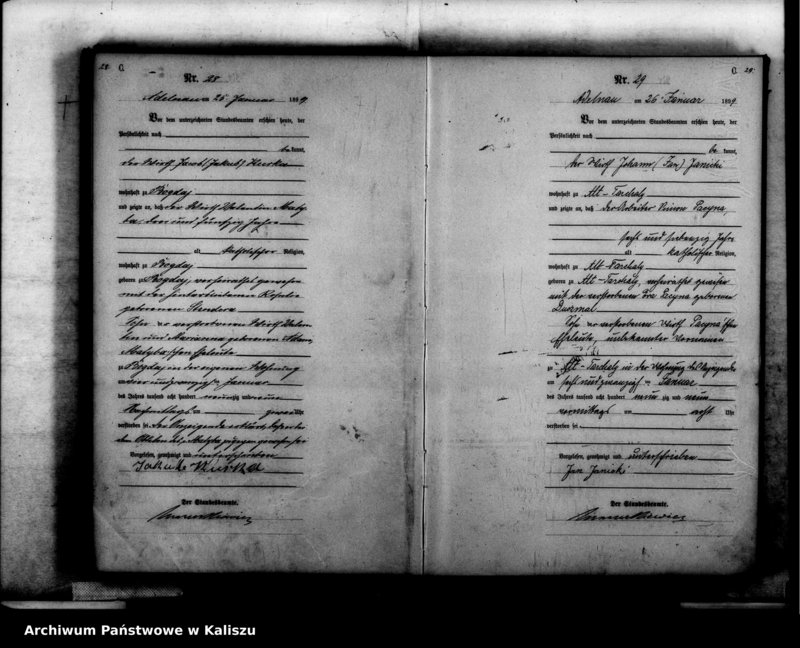 28. C.
Nr. 28
Adelnau am 25 Januar 1899
Vor dem unterzeichneten Standesbeamten erschien heute, der
Persönlichkeit nach
be kannt,
der Wirth Jacob (Jakub) Kurka
wohnhaft zu Bogdaj
und zeigte an, daß der Wirth Valentin
Jahre
alt katholischer Religion,
wohnhaft zu Bogdaj
geboren zu Bogdaj, verheirathet gewesen
mit der hinterbliebenen Rosalie
geborenen
Sohn der verstorbenen Wirth Valen-
tin und Marianna geborenen
Eheleute
zu Bogdaj in der eigenen Wohnung
am Januar
des Jahres tausend acht hundert neunzig und neun
Nachmittags um zwei Uhr
verstorben sei. Der Anzeigende erklärt, daß er bei
dem Ableben des zugegen gewesen sei
Vorgelesen, genehmigt und unterschrieben
Jakub Kurka
Der Standesbeamte.
C. 29.
Nr. 29
Adelnau am 26 Januar 1899
Vor dem unterzeichneten Standesbeamten erschien heute, der
Persönlichkeit nach
be kannt,
der Wirth Johann (Jan) Janicki
wohnhaft zu Alt-Tarchaly
und zeigte an, daß der Arbeiter Simon Pacyna,
sechs und siebenzig Jahre
alt katholischer Religion,
wohnhaft zu Alt-Tarchaly
geboren zu Alt-Tarchaly, verheirathet gewesen
mit der verstorbenen Eva Pacyna geborenen
Sohn der verstorbenen Wirth Pacyna'schen
Eheleute, unbekannter Vornamen
zu Alt-Tarchaly in der Wohnung des Anzeigenden
am sechs und zwanzigsten Januar
des Jahres tausend acht hundert neun zig und neun
vormittags um acht Uhr
verstorben sei.
Vorgelesen, genehmigt und unterschrieben
Jan Janicki
Der Standesbeamte.
Archiwum Państwowe w Kaliszu